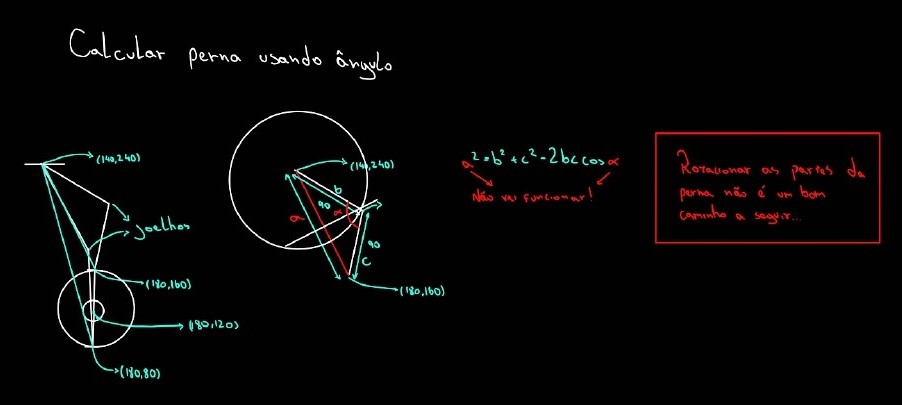 Calcular perna usando ângulo
(140,240)
joelhos
(180,160)
(180,120)
(180,80)
(140,240)
b
90
α
a
90
c
(180,160)
a² = b² + c² - 2bc cos α
Não vai funcionar!
Rotacionar as partes da
perna não é um bom
caminho a seguir...